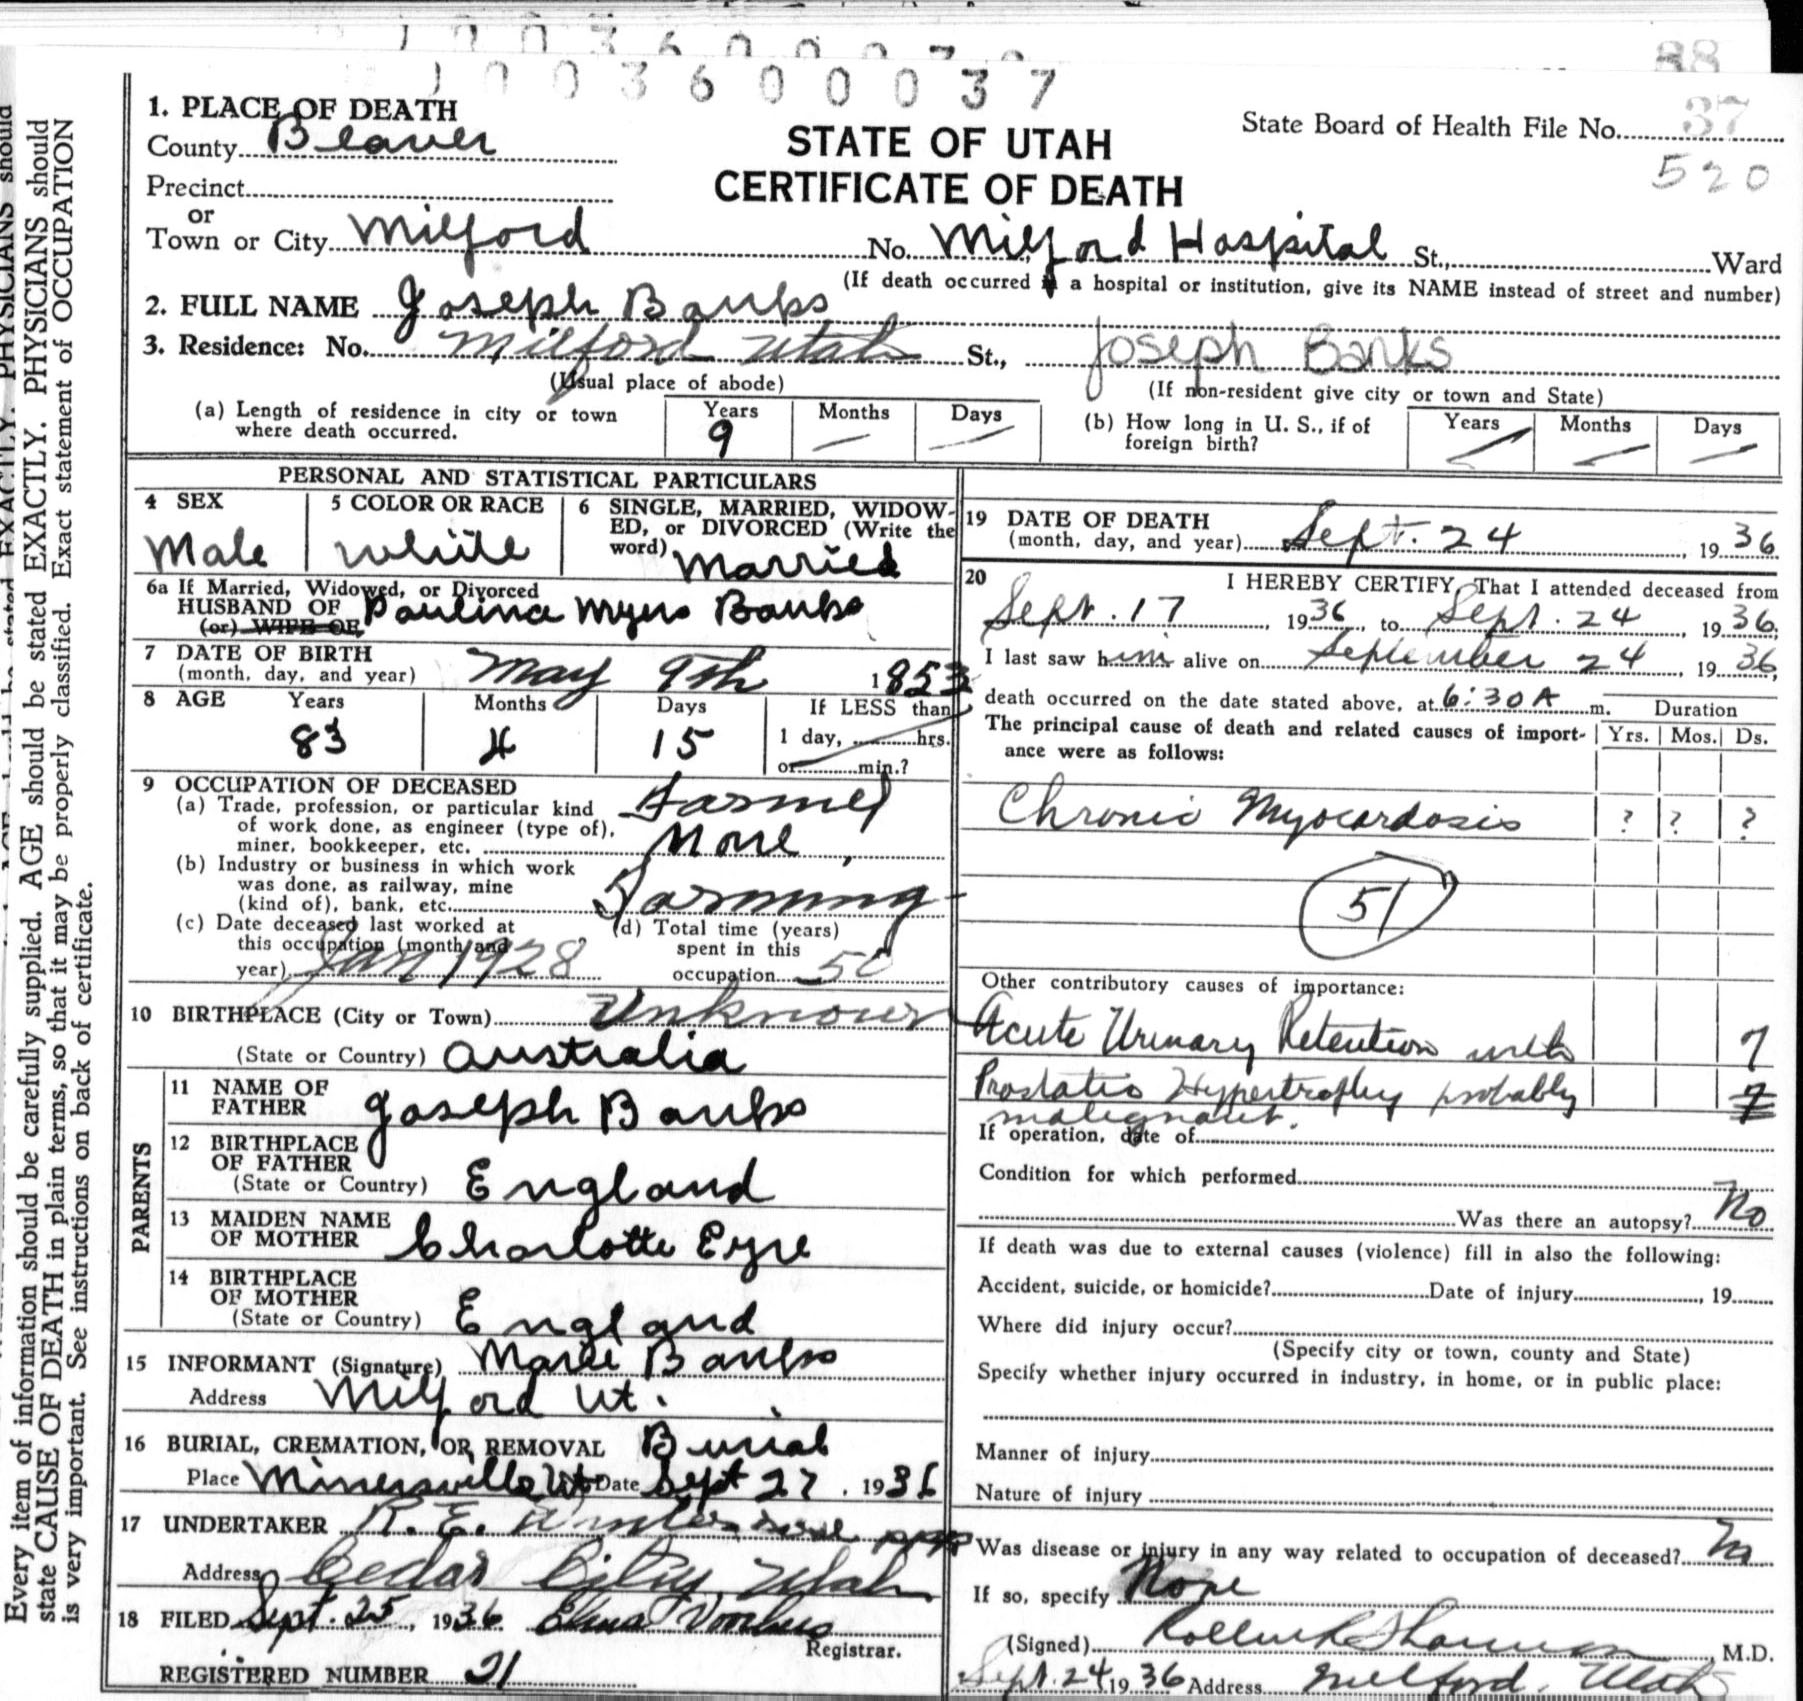 1003600037
88
37
1. PLACE OF DEATH
County Beaver
STATE OF UTAH
CERTIFICATE OF DEATH
State Board of Health File No.
520
Precinct
or
Town or City Milford No. Milford Hospital St., Ward
(If death occurred a hospital or institution, give its NAME instead of street and number)
2. FULL NAME Joseph Banks
3. Residence: No. Milford Utah St., Joseph Banks
(Usual place of abode) (If non-resident give city or town and State)
(a) Length of residence in city or town where death occurred. Years 9 Months — Days —
(b) How long in U. S., if of foreign birth? Years — Months — Days —
PERSONAL AND STATISTICAL PARTICULARS
4 SEX Male
5 COLOR OR RACE White
6 SINGLE, MARRIED, WIDOWED, or DIVORCED (Write the word) Married
6a If Married, Widowed, or Divorced
HUSBAND OF Paulina Myers Banks
(or) WIFE OF
7 DATE OF BIRTH
(month, day, and year) May 9th 1853
8 AGE Years 83 Months 4 Days 15 If LESS than
1 day, hrs.
or min.?
9 OCCUPATION OF DECEASED
(a) Trade, profession, or particular kind of work done, as engineer (type of), miner, bookkeeper, etc. Farmer
None
(b) Industry or business in which work was done, as railway, mine (kind of), bank, etc. Farming
(c) Date deceased last worked at this occupation (month and year) Jan 1928
(d) Total time (years) spent in this occupation 50
10 BIRTHPLACE (City or Town) Unknown
(State or Country) Australia
PARENTS
11 NAME OF FATHER Joseph Banks
12 BIRTHPLACE OF FATHER
(State or Country) England
13 MAIDEN NAME OF MOTHER Charlotte Eyre
14 BIRTHPLACE OF MOTHER
(State or Country) England
15 INFORMANT (Signature) Marie Banks
Address Milford Ut.
16 BURIAL, CREMATION, OR REMOVAL Burial
Place Minersville Ut Date Sept 27, 1936
17 UNDERTAKER R. E.
Address Cedar City, Utah
18 FILED Sept. 25, 1936 Registrar.
REGISTERED NUMBER 21
19 DATE OF DEATH
(month, day, and year) Sept. 24, 1936
20 I HEREBY CERTIFY, That I attended deceased from
Sept. 17, 1936, to Sept. 24, 1936,
I last saw him alive on September 24, 1936,
death occurred on the date stated above, at 6:30 A m.
The principal cause of death and related causes of importance were as follows:
Duration
Yrs. Mos. Ds.
Chronic Myocardosis ? ? ?
51
Other contributory causes of importance:
Acute Urinary Retention with 7
Prostatic Hypertrophy probably 7
malignant.
If operation, date of
Condition for which performed
Was there an autopsy? No
If death was due to external causes (violence) fill in also the following:
Accident, suicide, or homicide? Date of injury, 19
Where did injury occur?
(Specify city or town, county and State)
Specify whether injury occurred in industry, in home, or in public place:
Manner of injury
Nature of injury
Was disease or injury in any way related to occupation of deceased?
If so, specify None
(Signed) M.D.
Sept. 24 1936 Address Milford, Utah
Every item of information should be carefully supplied. AGE should be stated EXACTLY. PHYSICIANS should
state CAUSE OF DEATH in plain terms, so that it may be properly classified. Exact statement of OCCUPATION
is very important. See instructions on back of certificate.